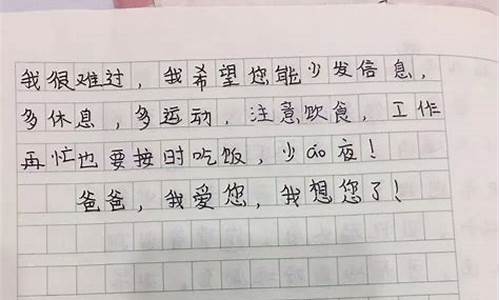 我很难过，我希望您能少发信息，
多休息，多运动，注意饮食，工作
再忙也要按时吃饭，少āo夜！
爸爸，我爱您，我想您了！